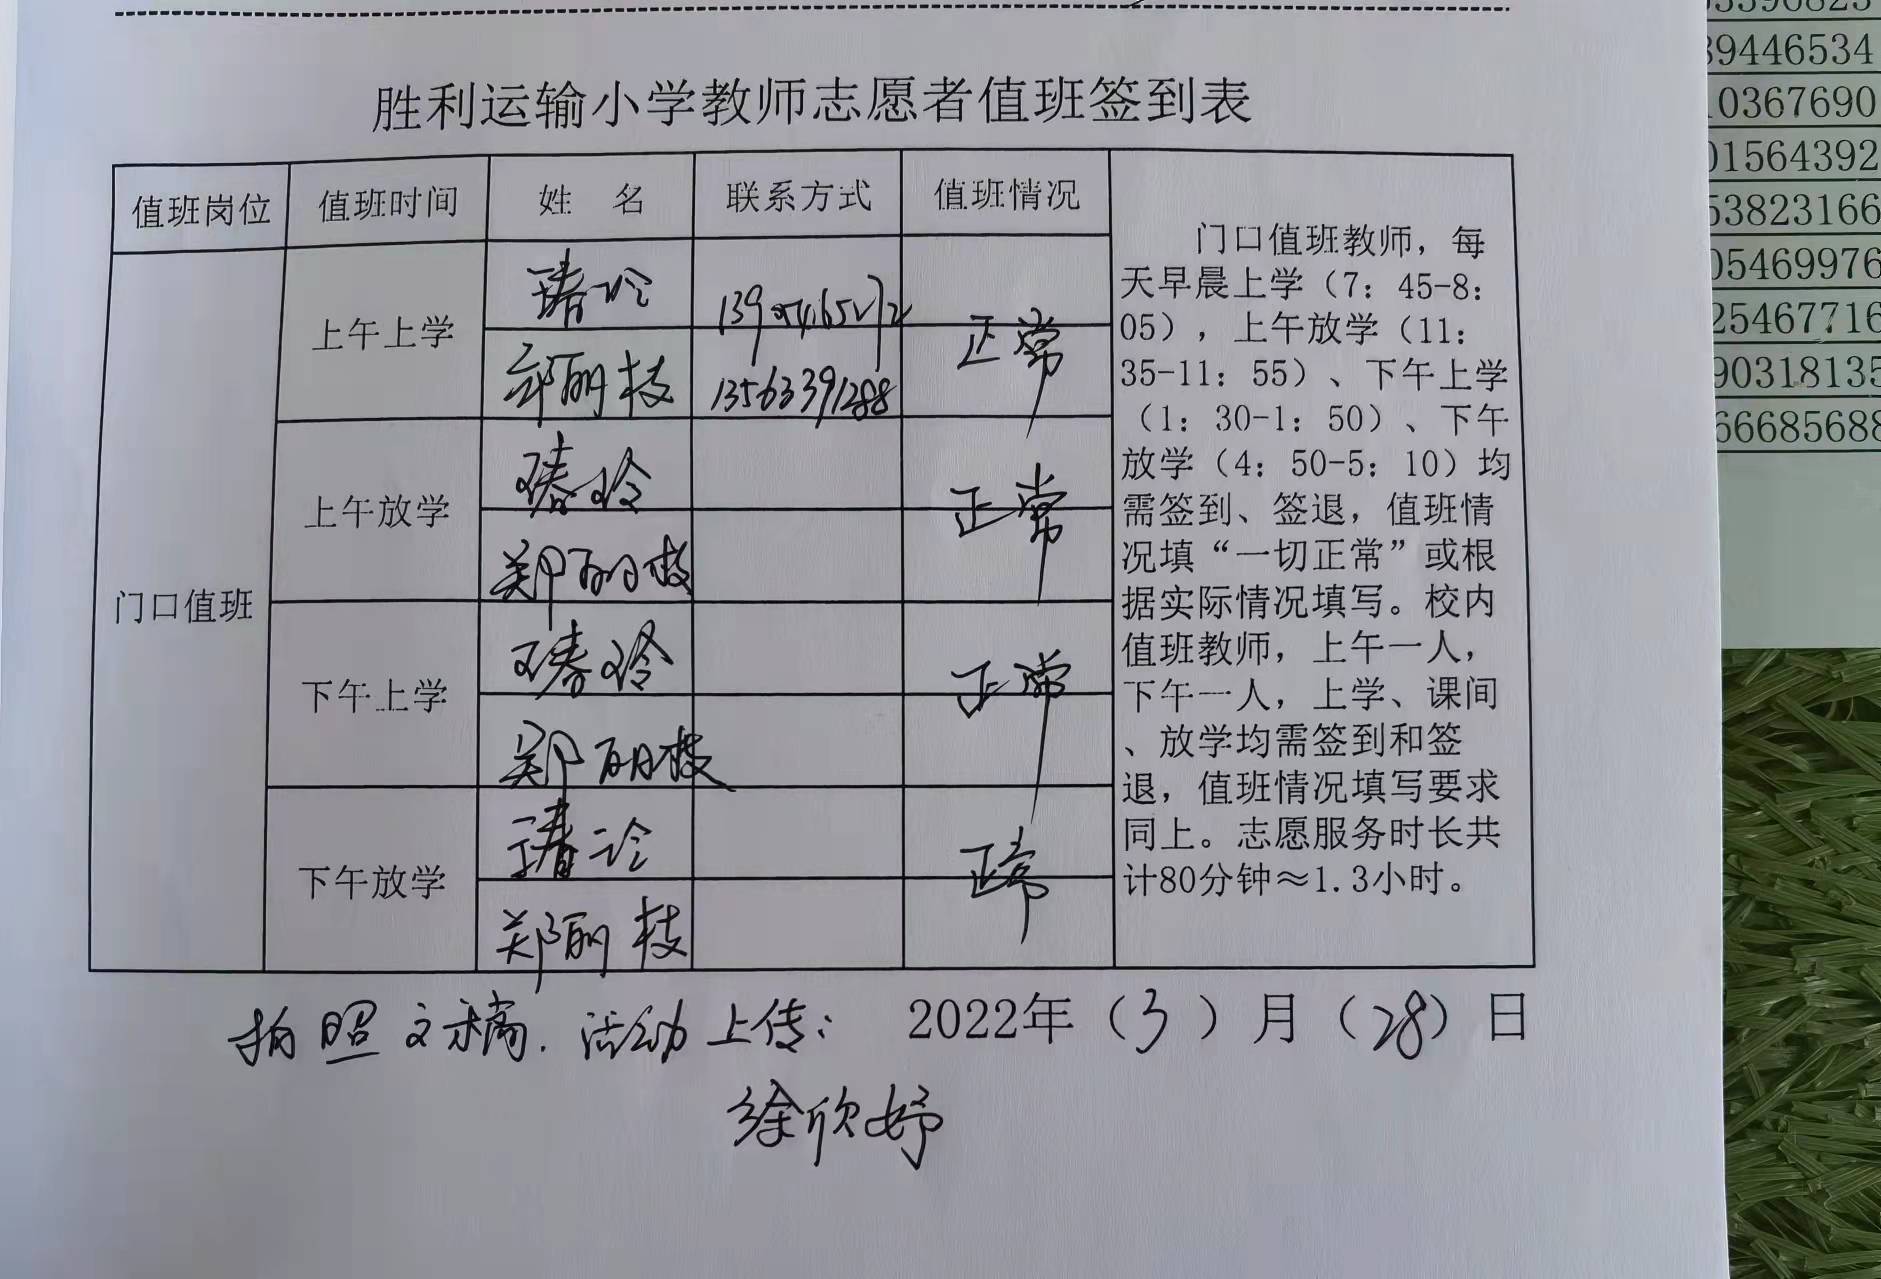 胜利运输小学教师志愿者值班签到表
值班岗位 值班时间 姓 名 联系方式 值班情况
门口值班
上午上学
郑丽枝 13563391288
正常
上午放学
郑丽枝
正常
下午上学
郑丽枝
正常
下午放学
郑丽枝
正常
门口值班教师，每
天早晨上学（7：45-8：
05），上午放学（11：
35-11：55）、下午上学
（1：30-1：50）、下午
放学（4：50-5：10）均
需签到、签退，值班情
况填“一切正常”或根
据实际情况填写。校内
值班教师，上午一人，
下午一人，上学、课间
、放学均需签到和签
退，值班情况填写要求
同上。志愿服务时长共
计80分钟≈1.3小时。
拍照 文稿. 活动上传： 2022年（3）月（28）日
徐欣妤
39446534
10367690
01564392
53823166
05469976
25467716
90318135
66685688